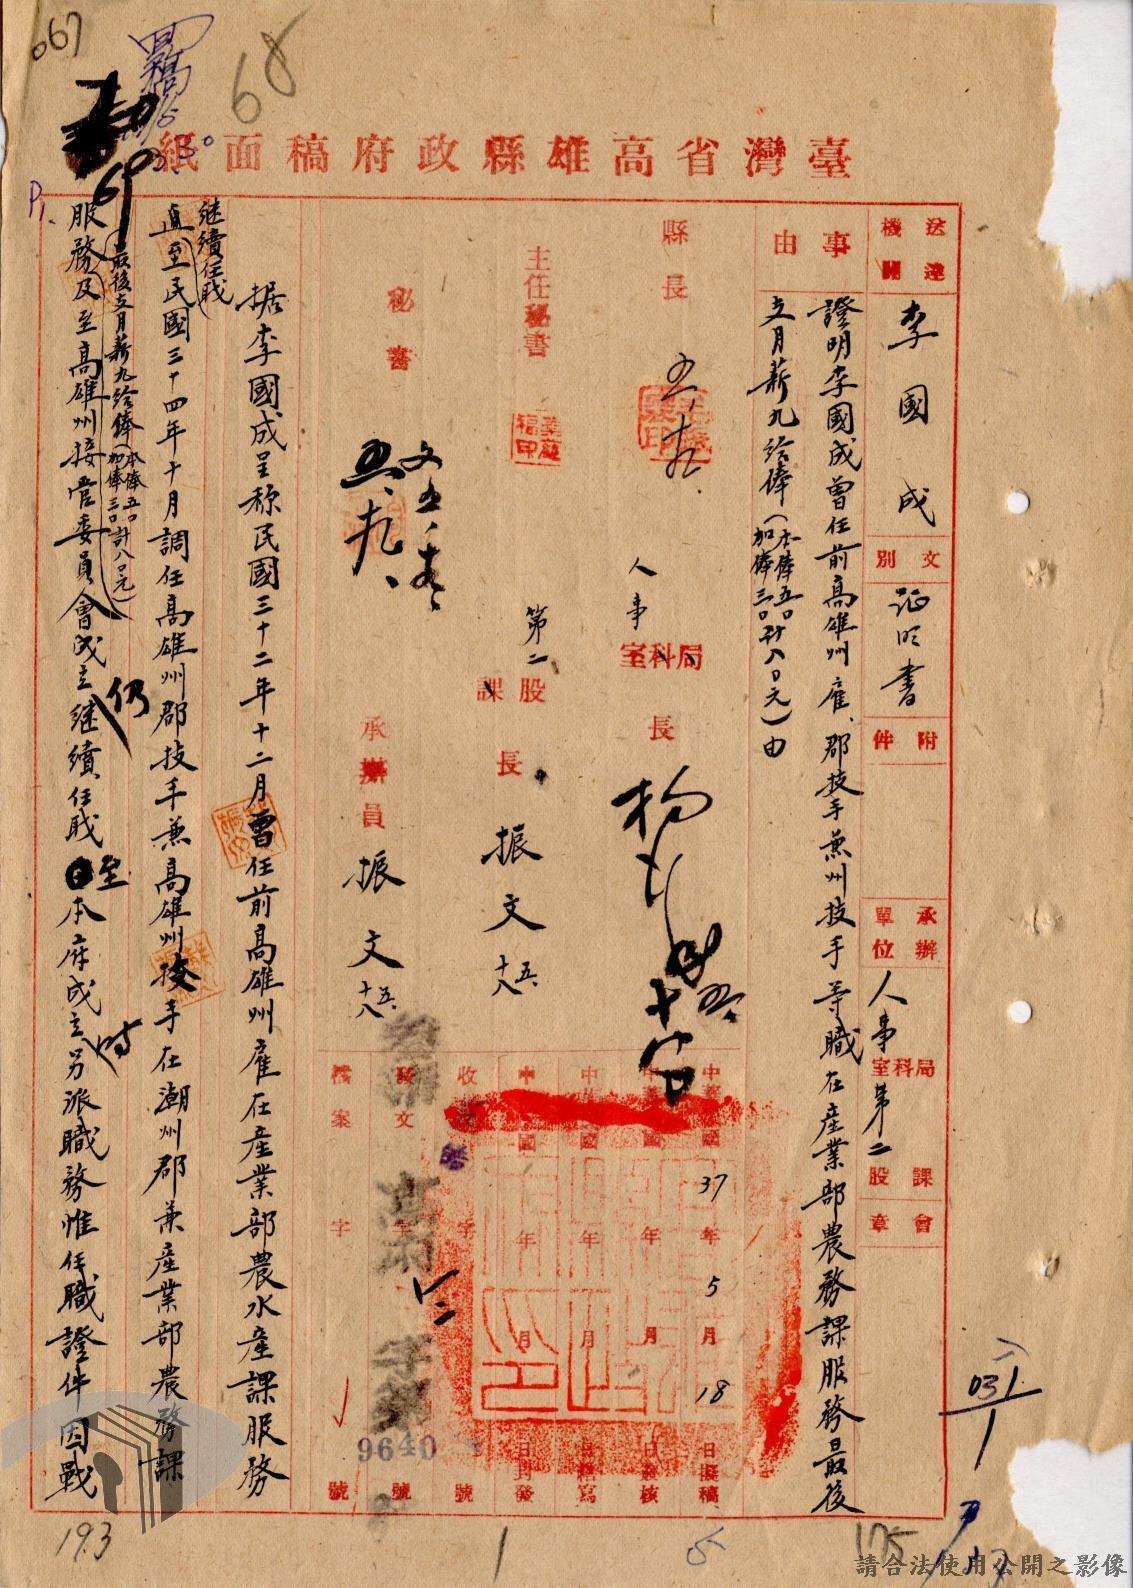 067
68
69
臺灣省高雄縣政府稿面紙
送達機關
李國成
文別
証明書
附件
承辦單位
人事
室科局
第二
股課
會章
事由
證明李國成曾任前高雄州雇、郡技手兼州技手等職在産業部農務課服務最後
支月薪九給俸（本俸五〇加俸三〇計八〇元）由
縣長
五、十九、
主任秘書
葉庭福印
秘書
五、九、
人事
室科局長
第二
課股長
振文
五、十八
承辦員
振文
五、十八
中華民國37年5月18日擬稿
年月日核
年月日繕寫
年月日封發
收文字號
發文字號
9640
檔案字號
据李國成呈称民國三十二年十二月曾任前高雄州雇在産業部農水産課服務
継續任職
直至民國三十四年十月調任高雄州郡技手兼高雄州技手在潮州郡兼産業部農務課
最後支月薪九給俸（本俸五〇加俸三〇計八〇元）
服務及至高雄州接管委員會成立仍継續任職至本府成立時另派職務惟任職證件因戰
193
1
5
175
031
請合法使用公開之影像